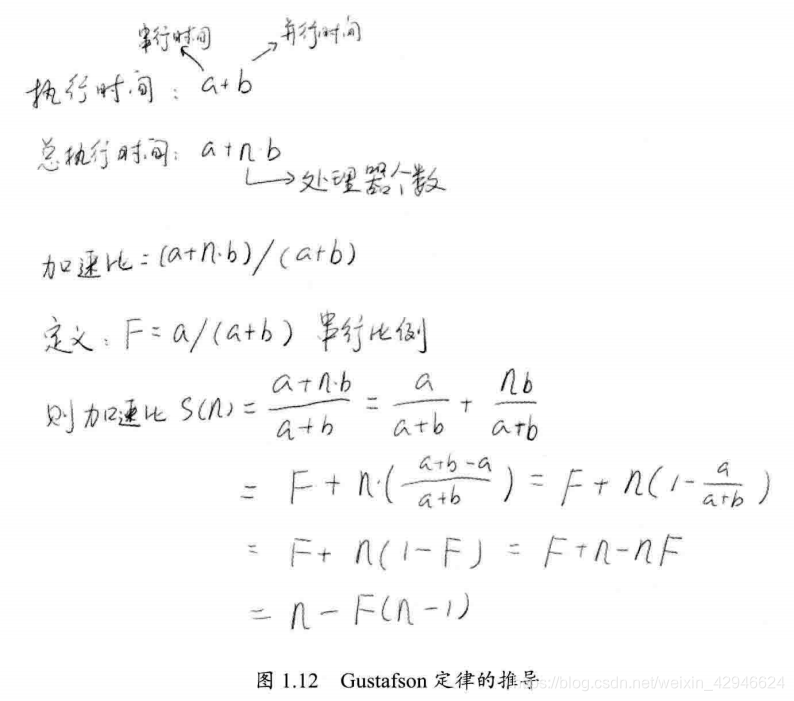 串行时间 并行时间
执行时间: a+b
总执行时间: a+n·b
处理器个数
加速比=(a+n·b)/(a+b)
定义: F=a/(a+b) 串行比例
则加速比 S(n) = \frac{a+n·b}{a+b} = \frac{a}{a+b} + \frac{nb}{a+b}
= F+n·(\frac{a+b-a}{a+b}) = F+n(1-\frac{a}{a+b})
= F+n(1-F) = F+n-nF
= n-F(n-1)
图 1.12 Gustafson 定律的推导
https://blog.csdn.net/weixin_42946624